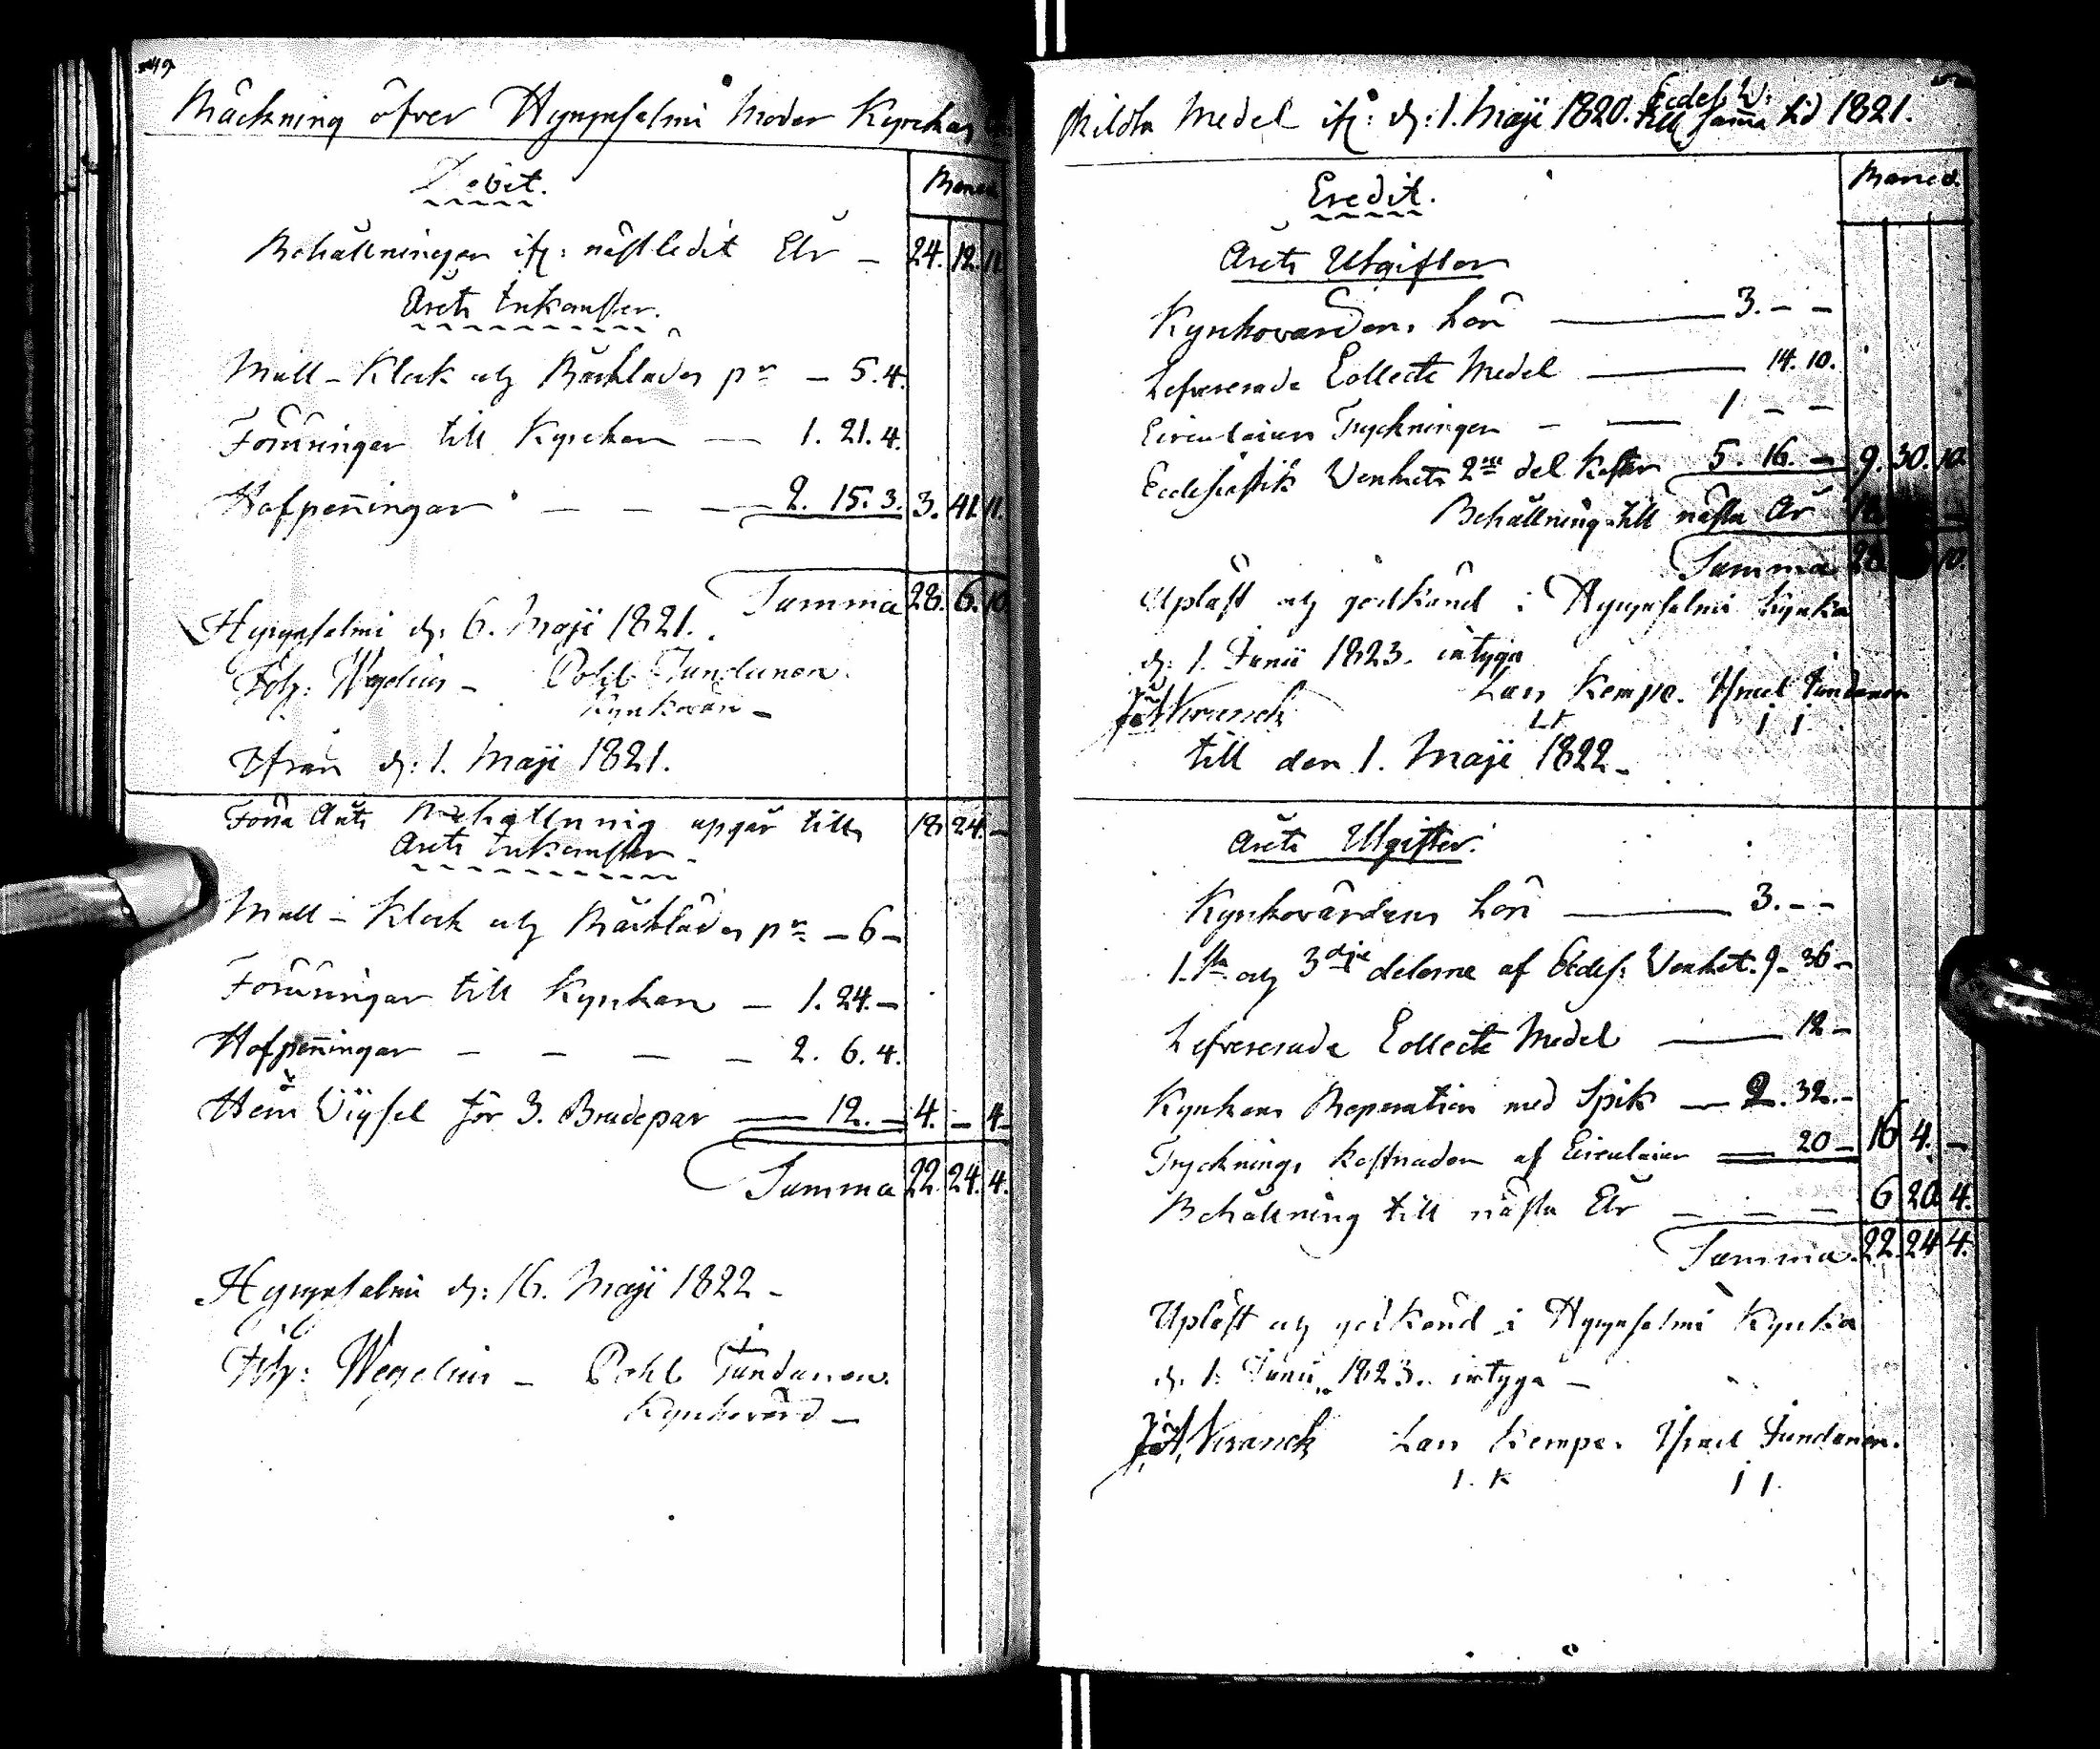 49
Räckning öfver Hyrynsalmi Moder Kyrckas
Debit.
Behållningen ifr: nästledit År – 24. 12. 11.
Årets Inkomster.
Mull-Klock och Bårklädes pr – 5. 4.
Foräringar till Kyrckan — 1. 21. 4.
Hafpenningar – – – 2. 15. 3. 3. 41. 11.
Summa 28. 6. 10.
Hyrynsalmi d: 6. Maji 1821.
Joh: Wegelius – Pohl Tundanen.
Kyrkovärd –
Ifrån d: 1. Maji 1821.
Förra Årets Behållning upgår till 18 24. –
Årets Inkomster.
Mull – Klock och Bårklädes pr – 6 –
Foräringar till Kyrkan – 1. 24. –
Hafpenningar – – – – 2. 6. 4.
Hem Vigsel för 3. Brudepar — 12. – 4. – 4.
Summa 22. 24. 4.
Hyrynsalmi d: 16. Maji 1822 –
Joh: Wegelius – Pohl Tundanen.
Kyrkovärd –
Enskilda Medel ifr: d: 1. Maji 1820. till samma tid 1821.
Credit.
Årets Utgifter
Kyrkovärdens Lön — 3. – –
Lefvererade Collecte Medel — 14. 10.
Circulairers Tryckningen – — 1 – –
Ecclesiastik Verkets 2dra del kostar 5. 16. – 9. 30. 10.
Behållning till nästa År 18
Summa 28 10.
Upläst och godkänd i Hyrynsalmi Kyrka
d: 1. Junii 1823. intyga
Franck Lars Kempa. Israel Tundanen
LK I I
till den 1. Maji 1822 –
Årets Utgifter.
Kyrkovärdens Lön — 3. – –
1.sta och 3dje delarne af Eccles: Verket. 9. 36 –
Lefvererade Collecte Medel — 12 –
Kyrkans Reparation med Spik — 2. 32. –
Trycknings kostnaden af Circulairer — 20 – 16 4. –
Behållning till nästa År – – – 6 20 4.
Summa 22. 24 4.
Upläst och godkänd i Hyrynsalmi Kyrka
d. 1. Junii 1823. intyga –
Franck Lars Kempa. Israel Tundanen.
L. K I I.